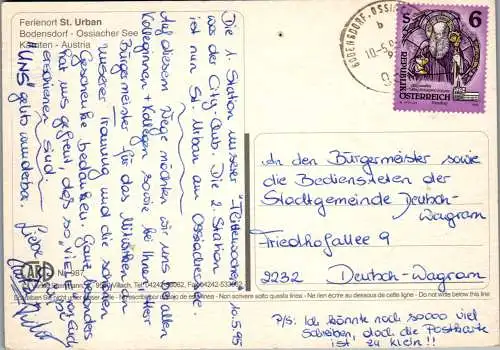 Ferienort St. Urban
Bodensdorf - Ossiacher See
Kärnten - Austria
Die 1. Station unserer "Flitterwoche"
war der City-Club. Die 2. Station
ist nun St. Urban am Ossiachersee.
10.5.95
Auf diesem Wege möchten wir uns bei allen
Kolleginnen + Kollegen sowie bei Ihnen Herr
Bürgermeister für das Mitwirken bei
unserer Trauung und die schönen
Geschenke bedanken. Ganz besonders
hat uns gefreut, daß so viele
erschienen sind.
Uns geht's wunderbar.
Liebe
Nr. 987
BODENSDORF, OSSIACH
b
10-5.95
S 6
REPUBLIK
ÖSTERREICH
An den Bürgermeister sowie
die Bediensteten der
Stadtgemeinde Deutsch-
Wagram
Friedhofallee 9
2232 Deutsch-Wagram
P/S: Ich könnte noch soooo viel
schreiben, doch die Postkarte
ist zu klein!!
Bitte hier nicht unter dieser - No escribir debajo de esta línea - Non scrivere sotto questa linea - Ne rien écrire au dessous de cette ligne - Do not write below this line